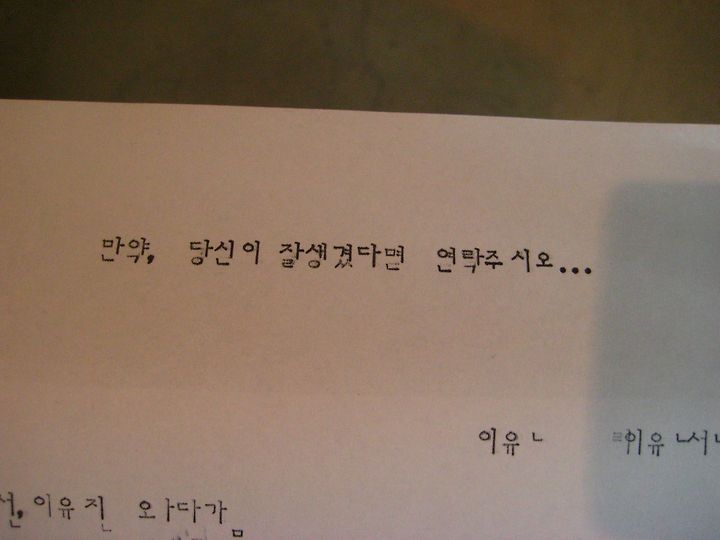 만약, 당신이 잘생겼다면 연락주시오...
이유ㄴ 이유ㄴ서ㄴ
선,이유진 오ㅏ다가